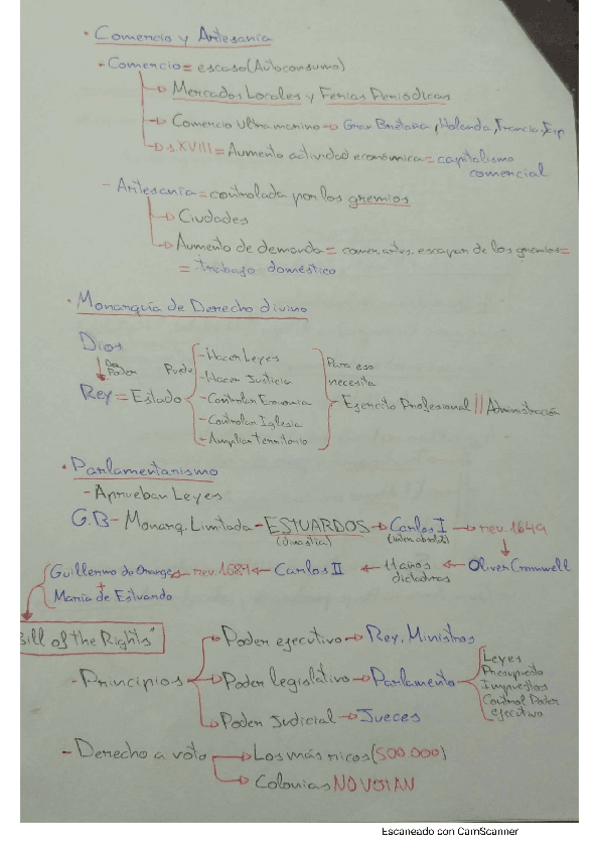 · Comercio y Artesanía
· Comercio = escaso (Autoconsumo)
→ Mercados Locales y Ferias Periódicas
→ Comercio Ultramarino → Gran Bretaña, Holanda, Francia, Esp
→ s.XVIII = Aumento actividad económica = capitalismo
comercial
- Artesanía = controlada por los gremios
→ Ciudades
→ Aumento de demanda = comerciantes. escapan de los gremios =
= trabajo doméstico
· Monarquía de Derecho divino
Dios
Da Poder
Rey = Estado
Puede
- Hacer Leyes
- Hacer Justicia
- Controlar Economía
- Controlar Iglesia
- Ampliar territorio
Para eso
necesita
Ejercito Profesional || Administración
· Parlamentarismo
- Aprueban Leyes
G.B - Monarq. Limitada - ESTUARDOS → Carlos I → rev. 1649
(dinastía)
Guillermo de Orange ← rev. 1689 ← Carlos II ← 11 años ← Oliver Cromwell
dictadura
+
María de Estuardo
Bill of the Rights"
- Principios
→ Poder ejecutivo → Rey. Ministros
→ Poder legislativo → Parlamento
Leyes
Presupuesto
Impuestos
Control Poder
ejecutivo
→ Poder Judicial → Jueces
- Derecho a voto → Los más ricos (500.000)
→ Colonias NO VOTAN
Escaneado con CamScanner